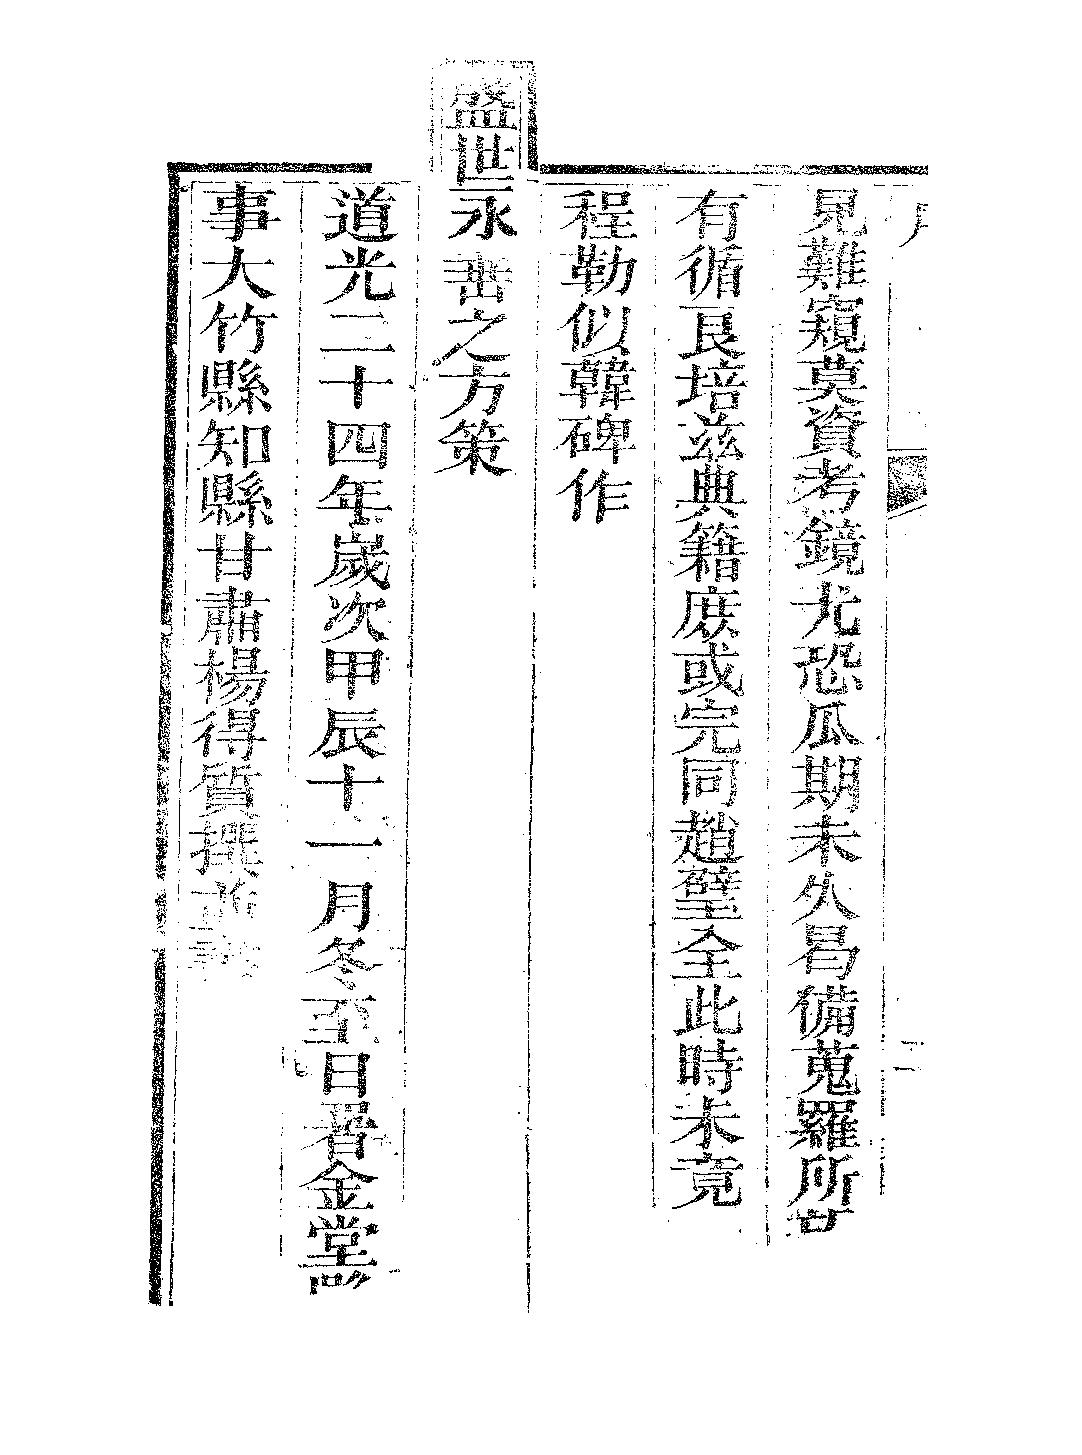 見難窺莫資考鏡尤恐瓜期未久曷備蒐羅所
有循良培茲典籍庶或完同趙璧全此時未竟
程勒似韓碑作
盛世永垂之方策
道光二十四年歲次甲辰十一月冬至日署金堂
事大竹縣知縣甘肅楊得質撰並